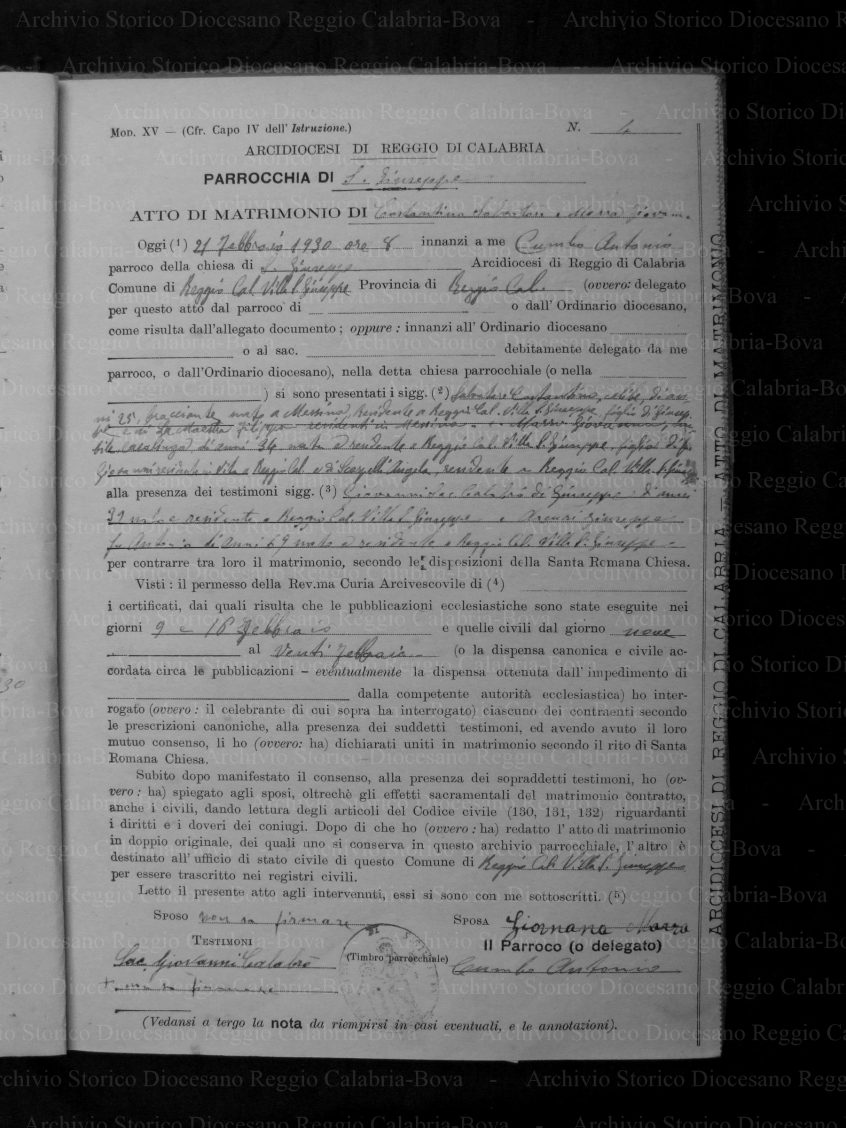 Mod. XV — (Cfr. Capo IV dell' Istruzione.) N. 4
ARCIDIOCESI DI REGGIO DI CALABRIA
PARROCCHIA DI S. Giuseppe
ATTO DI MATRIMONIO DI Costantino Salvatore e Morra Giovan.
Oggi (1) 21 Febbraio 1930 ore 8 innanzi a me Cumbo Antonio
parroco della chiesa di S. Giuseppe Arcidiocesi di Reggio di Calabria
Comune di Reggio Cal. Villa S. Giuseppe Provincia di Reggio Cal. (ovvero: delegato
per questo atto dal parroco di o dall' Ordinario diocesano,
come risulta dall'allegato documento; oppure: innanzi all' Ordinario diocesano
o al sac. debitamente delegato da me
parroco, o dall'Ordinario diocesano), nella detta chiesa parrocchiale (o nella
) si sono presentati i sigg. (2) Salvatore Costantino, di an-
ni 25, bracciante nato a Messina, residente a Reggio Cal. Villa S. Giuseppe figlio di Giusep-
pe e di residenti a Messina e Giovanna,
casalinga di anni 34 nata e residente a Reggio Cal. Villa S. Giuseppe, figlia di fu
Giovanni residente in vita a Reggio Cal. e di Angela, residente a Reggio Cal. Villa S. Giuseppe
alla presenza dei testimoni sigg. (3) Giovanni Sac. Calabrò di Giuseppe di anni
39 nato e residente a Reggio Cal. Villa S. Giuseppe e Giuseppe
fu Antonio di anni 69 nato e residente a Reggio Cal. Villa S. Giuseppe -
per contrarre tra loro il matrimonio, secondo le disposizioni della Santa Romana Chiesa.
Visti : il permesso della Rev.ma Curia Arcivescovile di (4)
i certificati, dai quali risulta che le pubblicazioni ecclesiastiche sono state eseguite nei
giorni 9 e 16 Febbraio e quelle civili dal giorno nove
al venti febbraio (o la dispensa canonica e civile ac-
cordata circa le pubblicazioni - eventualmente la dispensa ottenuta dall' impedimento di
dalla competente autorità ecclesiastica) ho inter-
rogato (ovvero : il celebrante di cui sopra ha interrogato) ciascuno dei contraenti secondo
le prescrizioni canoniche, alla presenza dei suddetti testimoni, ed avendo avuto il loro
mutuo consenso, li ho (ovvero: ha) dichiarati uniti in matrimonio secondo il rito di Santa
Romana Chiesa.
Subito dopo manifestato il consenso, alla presenza dei sopraddetti testimoni, ho (ov-
vero : ha) spiegato agli sposi, oltrechè gli effetti sacramentali del matrimonio contratto,
anche i civili, dando lettura degli articoli del Codice civile (130, 131, 132) riguardanti
i diritti e i doveri dei coniugi. Dopo di che ho (ovvero : ha) redatto l' atto di matrimonio
in doppio originale, dei quali uno si conserva in questo archivio parrocchiale, l' altro è
destinato all' ufficio di stato civile di questo Comune di Reggio Cal. Villa S. Giuseppe
per essere trascritto nei registri civili.
Letto il presente atto agli intervenuti, essi si sono con me sottoscritti. (5)
SPOSO non sa firmare SPOSA
TESTIMONI Il Parroco (o delegato)
Sac. Giovanni Calabrò (Timbro parrocchiale) Cumbo Antonio
+ non sa firmare
(Vedansi a tergo la nota da riempirsi in casi eventuali, e le annotazioni).
ARCIDIOCESI DI REGGIO DI CALABRIA — ATTO DI MATRIMONIO
Archivio Storico Diocesano Reggio Calabria-Bova